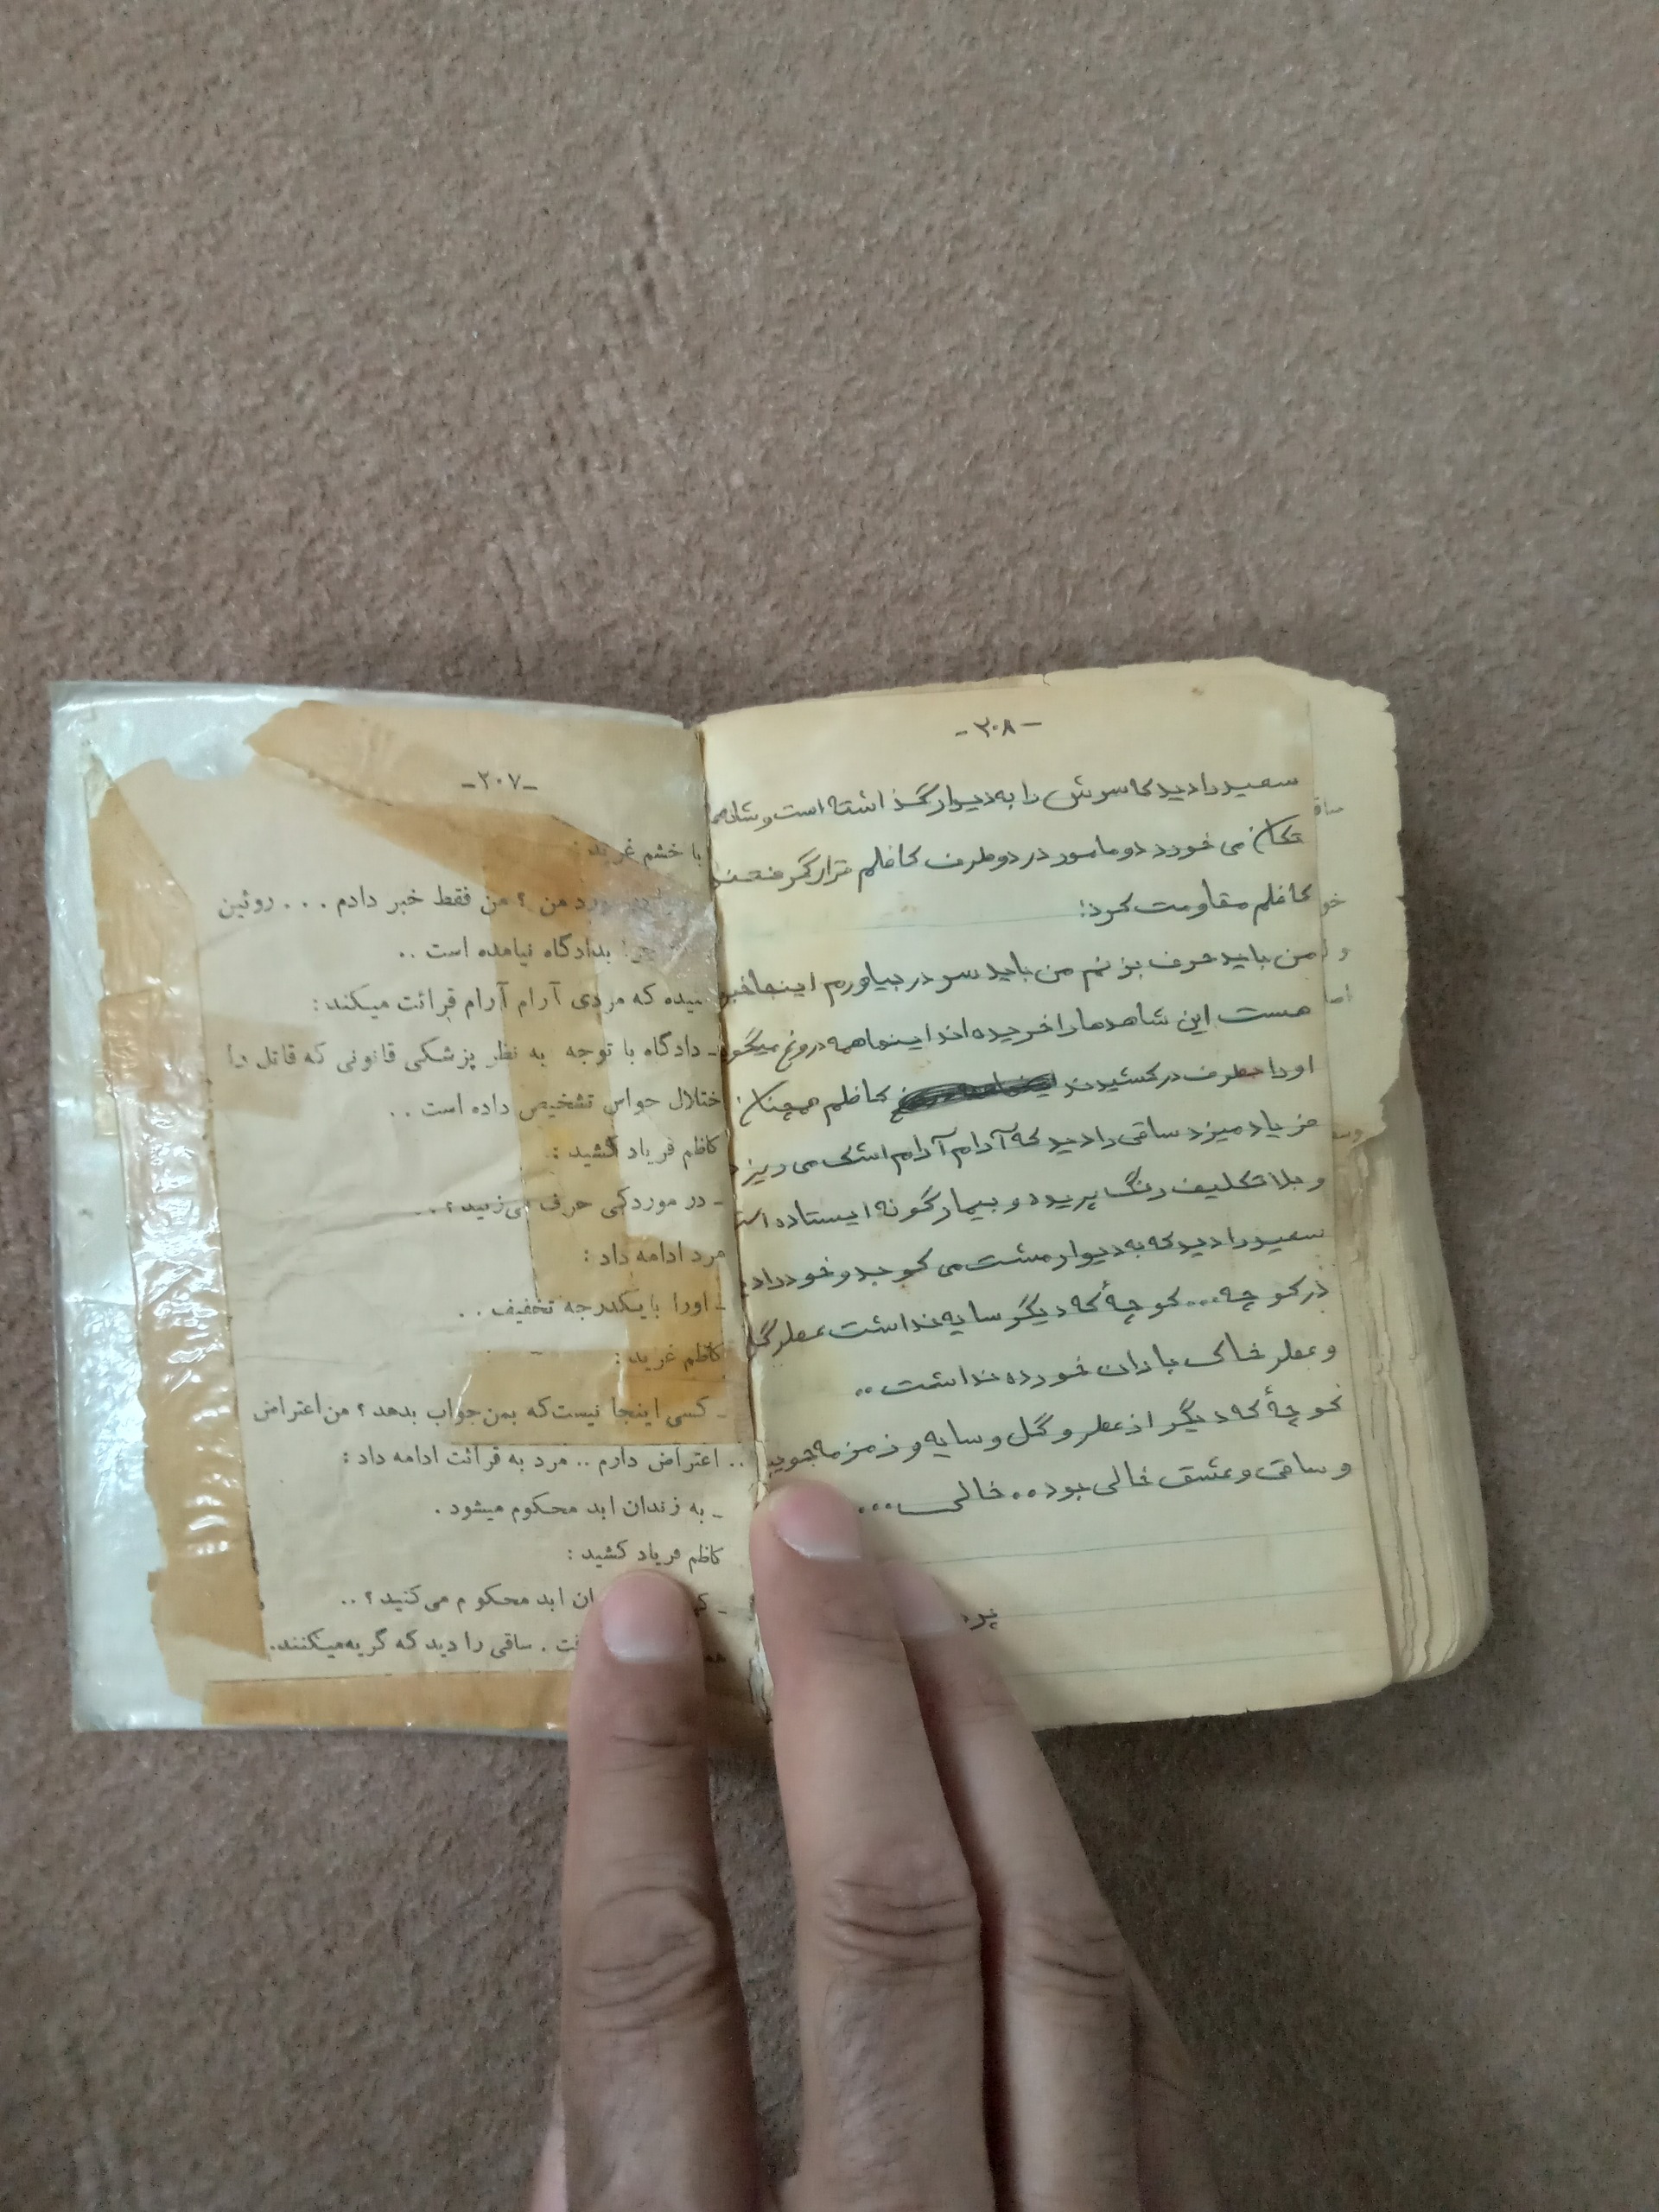 -۲۰۷-
با خشم غرید :
من ؟ من فقط خبر دادم . . . روئین
چرا بدادگاه نیامده است ..
که مردی آرام آرام قرائت میکند :
ـ دادگاه با توجه به نظر پزشکی قانونی که قاتل را
ختلال حواس تشخیص داده است . .
کاظم فریاد کشید :
ـ در مورد کی حرف می‌زنید ؟ . .
مرد ادامه داد :
ـ اورا با یکدرجه تخفیف . .
کاظم غرید :
ـ کسی اینجا نیست که بمن جواب بدهد ؟ من اعتراض
.. اعتراض دارم .. مرد به قرائت ادامه داد :
ـ به زندان ابد محکوم میشود .
کاظم فریاد کشید :
ابد محکوم می‌کنید ؟ ..
ساقی را دید که گریه میکنند.
-۲۰۸-
سعید را دید که سرش را به دیوار گذاشته است و
تکان می خورد دو مامور در دو طرف کاظم قرار گرفتند
کاظم مقاومت کرد:
من باید حرف بزنم من باید سر در بیاورم اینجا
هست این شاهدها را خریده اند اینها همه دروغ
او را بطرف در کشیدند کاظم همچنان
فریاد میزد ساقی را دید که آرام آرام اشک می ریزد
و بلاتکلیف رنگ پریده و بیمارگونه ایستاده
سعید را دید که به دیوار مشت می کوبد و خود را
در کوچه... کوچهٔ که دیگر سایه نداشت عطر گل
و عطر خاک باران خورده نداشت ..
کوچهٔ که دیگر از عطر و گل و سایه و زمزمه جویبار
و ساقی و عشق خالی بود .. خالی ...